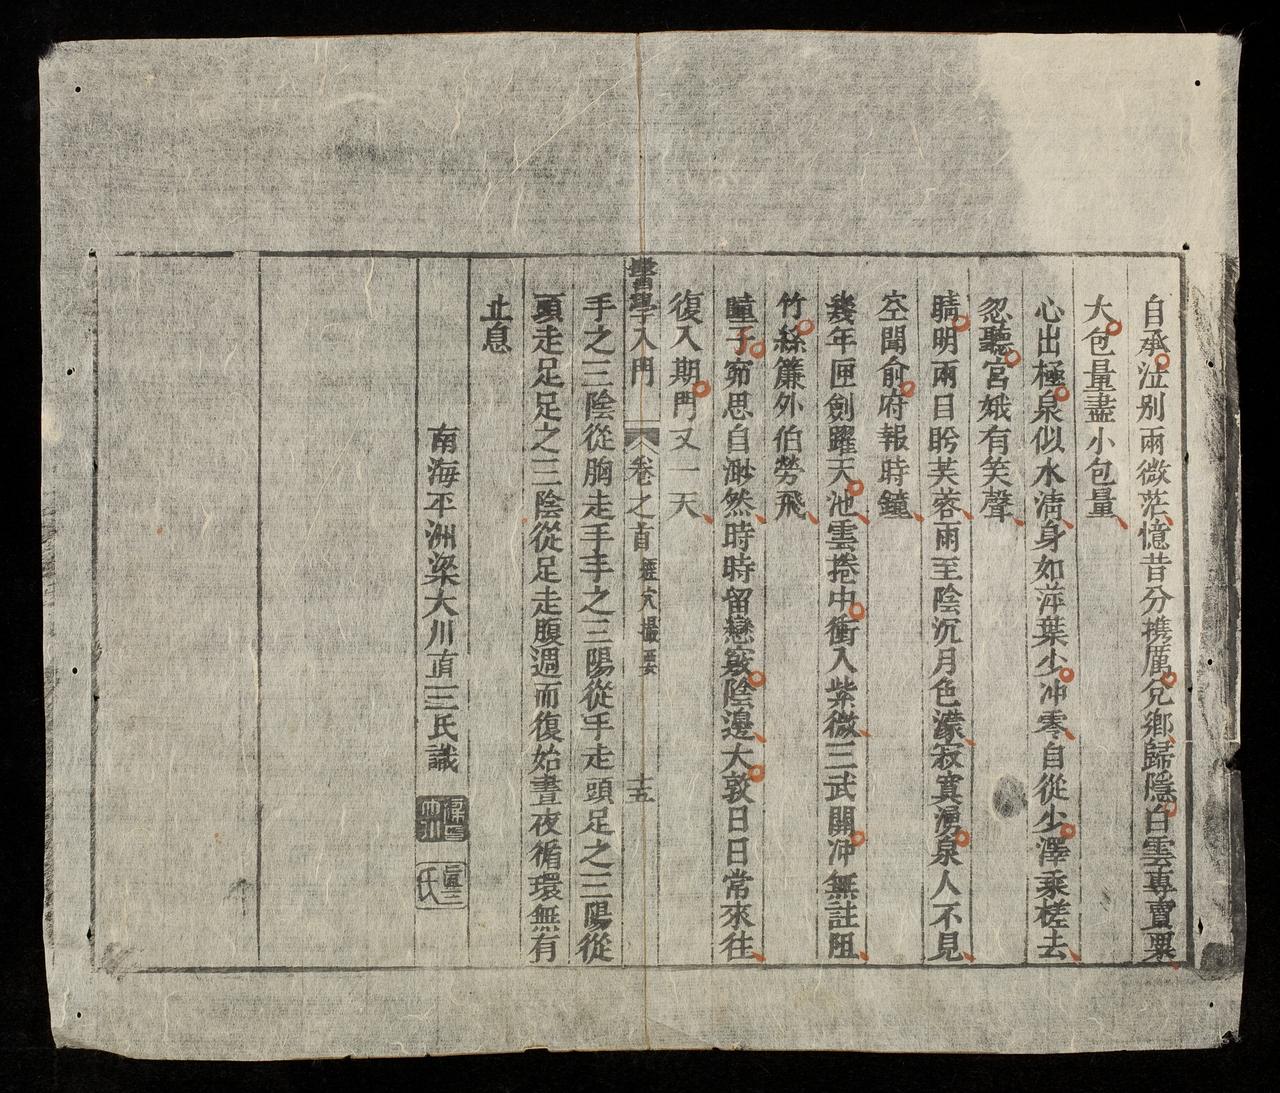 自承泣别兩微茫憶昔分携厲兌鄉歸隱白雲專賣粟
大包量盡小包量
心出極泉似水清身如萍葉少冲零自從少澤乘槎去
忽聽宮娥有笑聲
睛明兩目盻芙蓉雨至陰沉月色濛寂寞湧泉人不見
空聞俞府報時鐘
幾年匣劍躍天池雲捲中衝入紫微三武開冲無註阻
竹絲簾外伯勞飛
瞳子窮思自渺然時時留戀竅陰邊大敦日日常來往
復入期門又一天
醫學入門 卷之首 經穴撮要 十五
手之三陰從胸走手手之三陽從手走頭足之三陽從
頭走足足之三陰從足走腹週而復始晝夜循環無有
止息
南海平洲梁大川直三氏識
直三氏